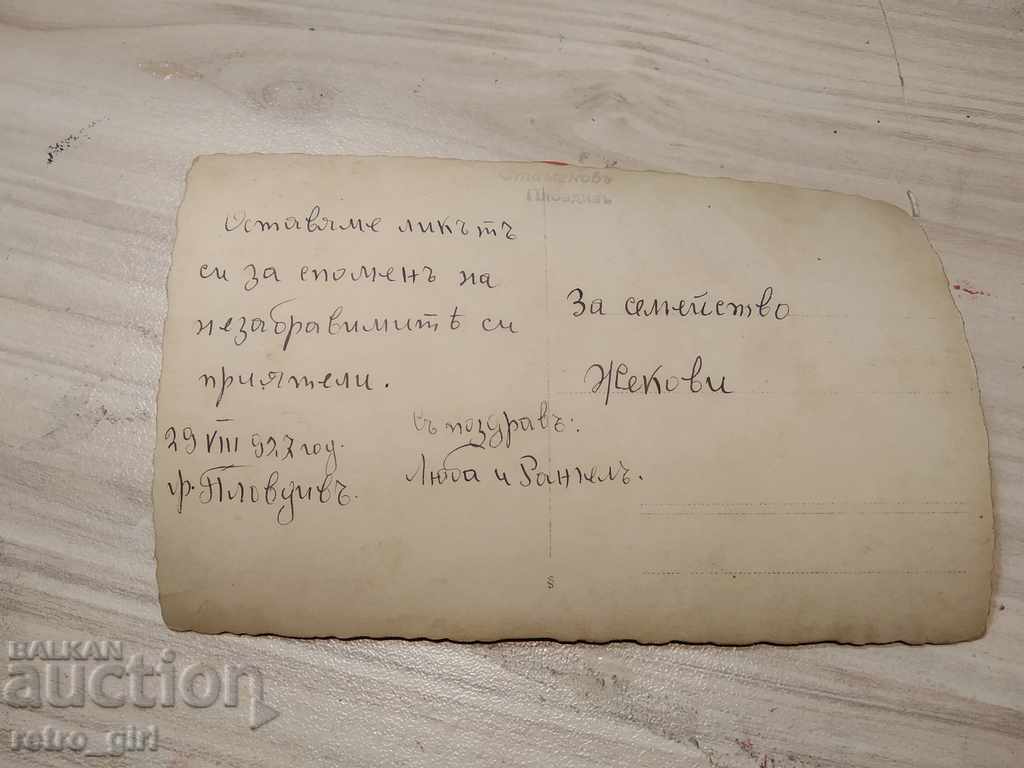 Стаменовъ
Пловдивъ
Оставяме ликътъ
си за споменъ на
незабравимитѣ си
приятели.
29 VIII 927 год.
гр. Пловдивъ.
Съ поздравъ:
Люба и Рангелъ.
За семейство
Жекови
§
BALKAN
auction
retro_girl